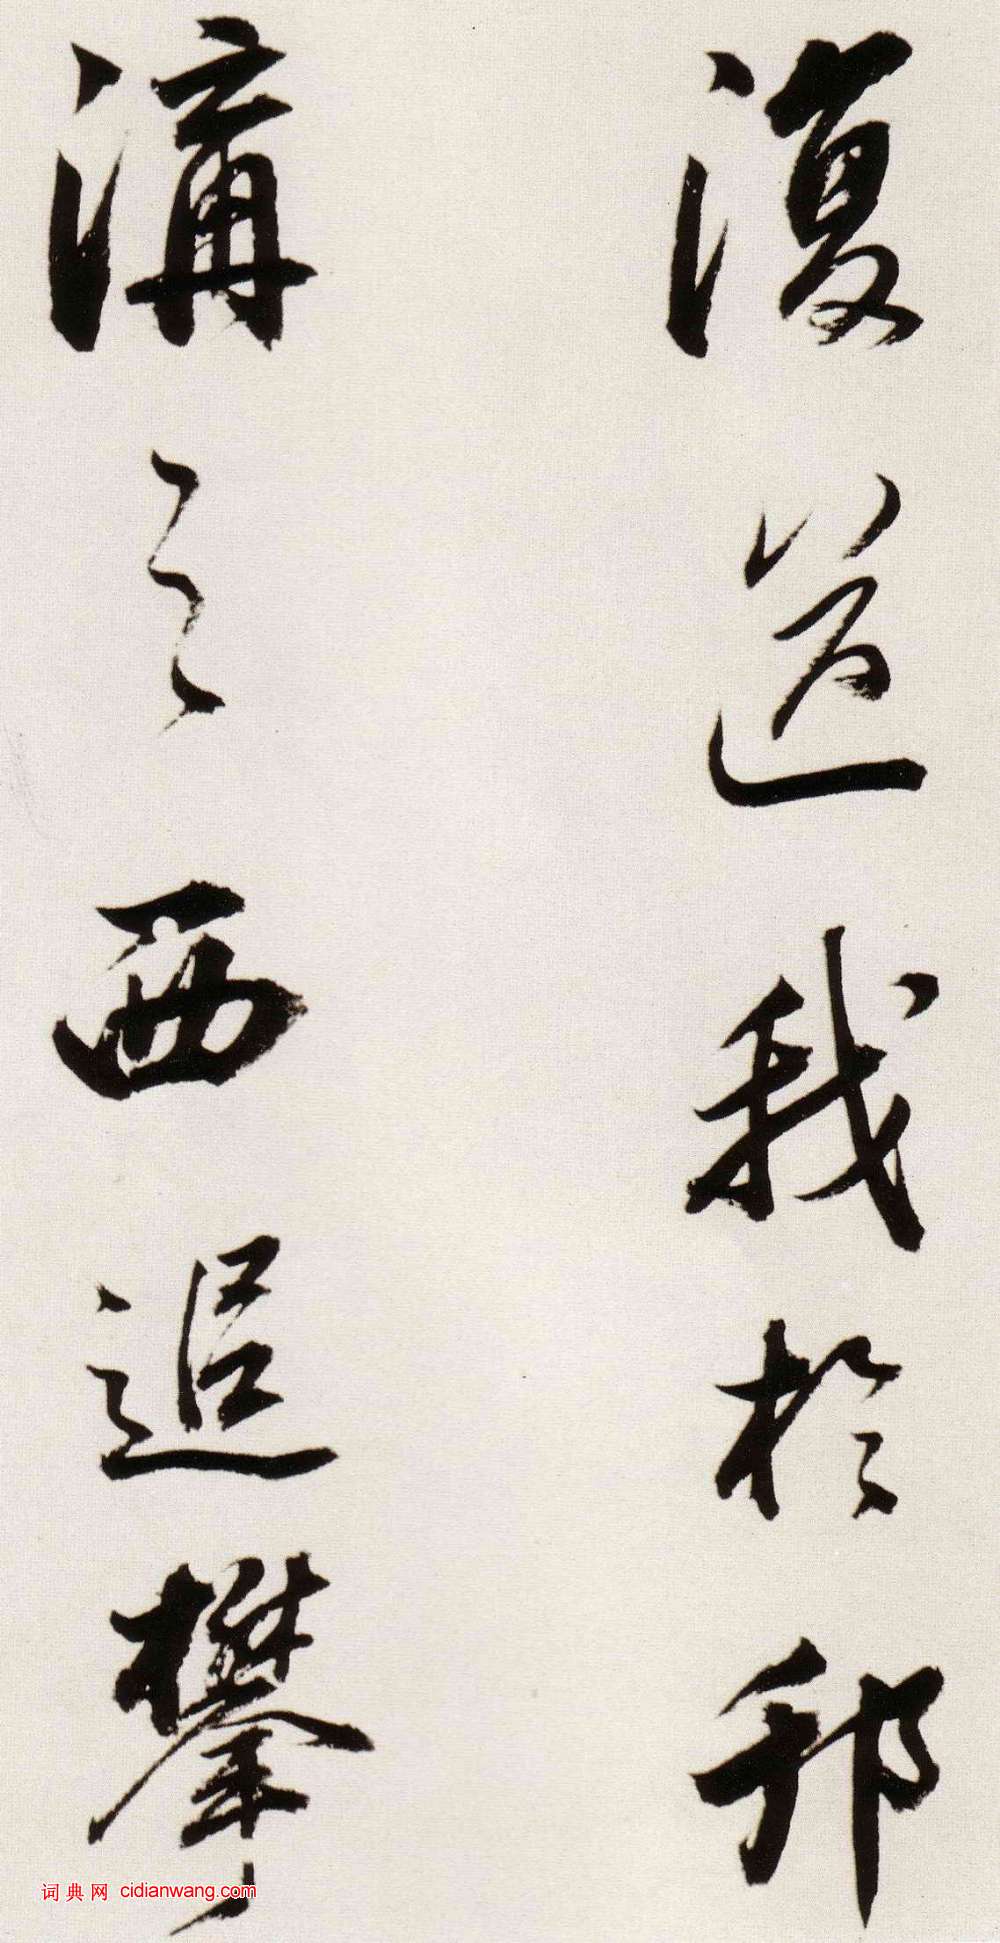 復送我於邗
溝之西追攀
词典网 cidianwang.com